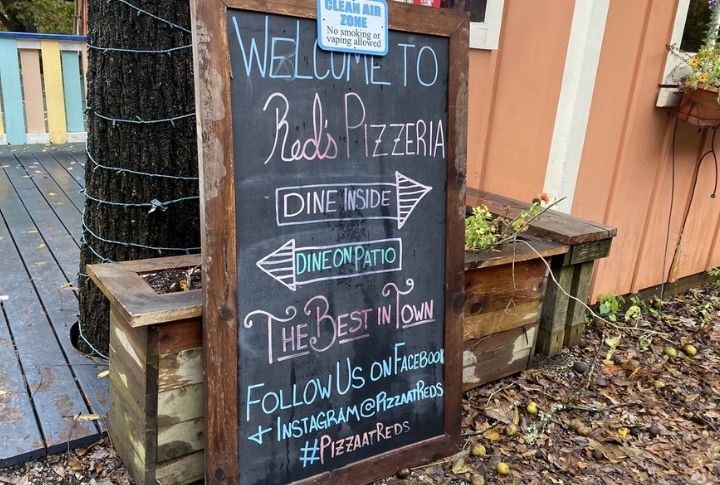 CLEAN AIR
ZONE
No smoking or
vaping allowed
WELCOME TO
Red's PIZZERIA
DINE INSIDE
DINE ON PATIO
THE BEST IN TOWN
FOLLOW US ON FACEBOOK
+ INSTAGRAM@PIZZAATREDS
#PIZZAATREDS